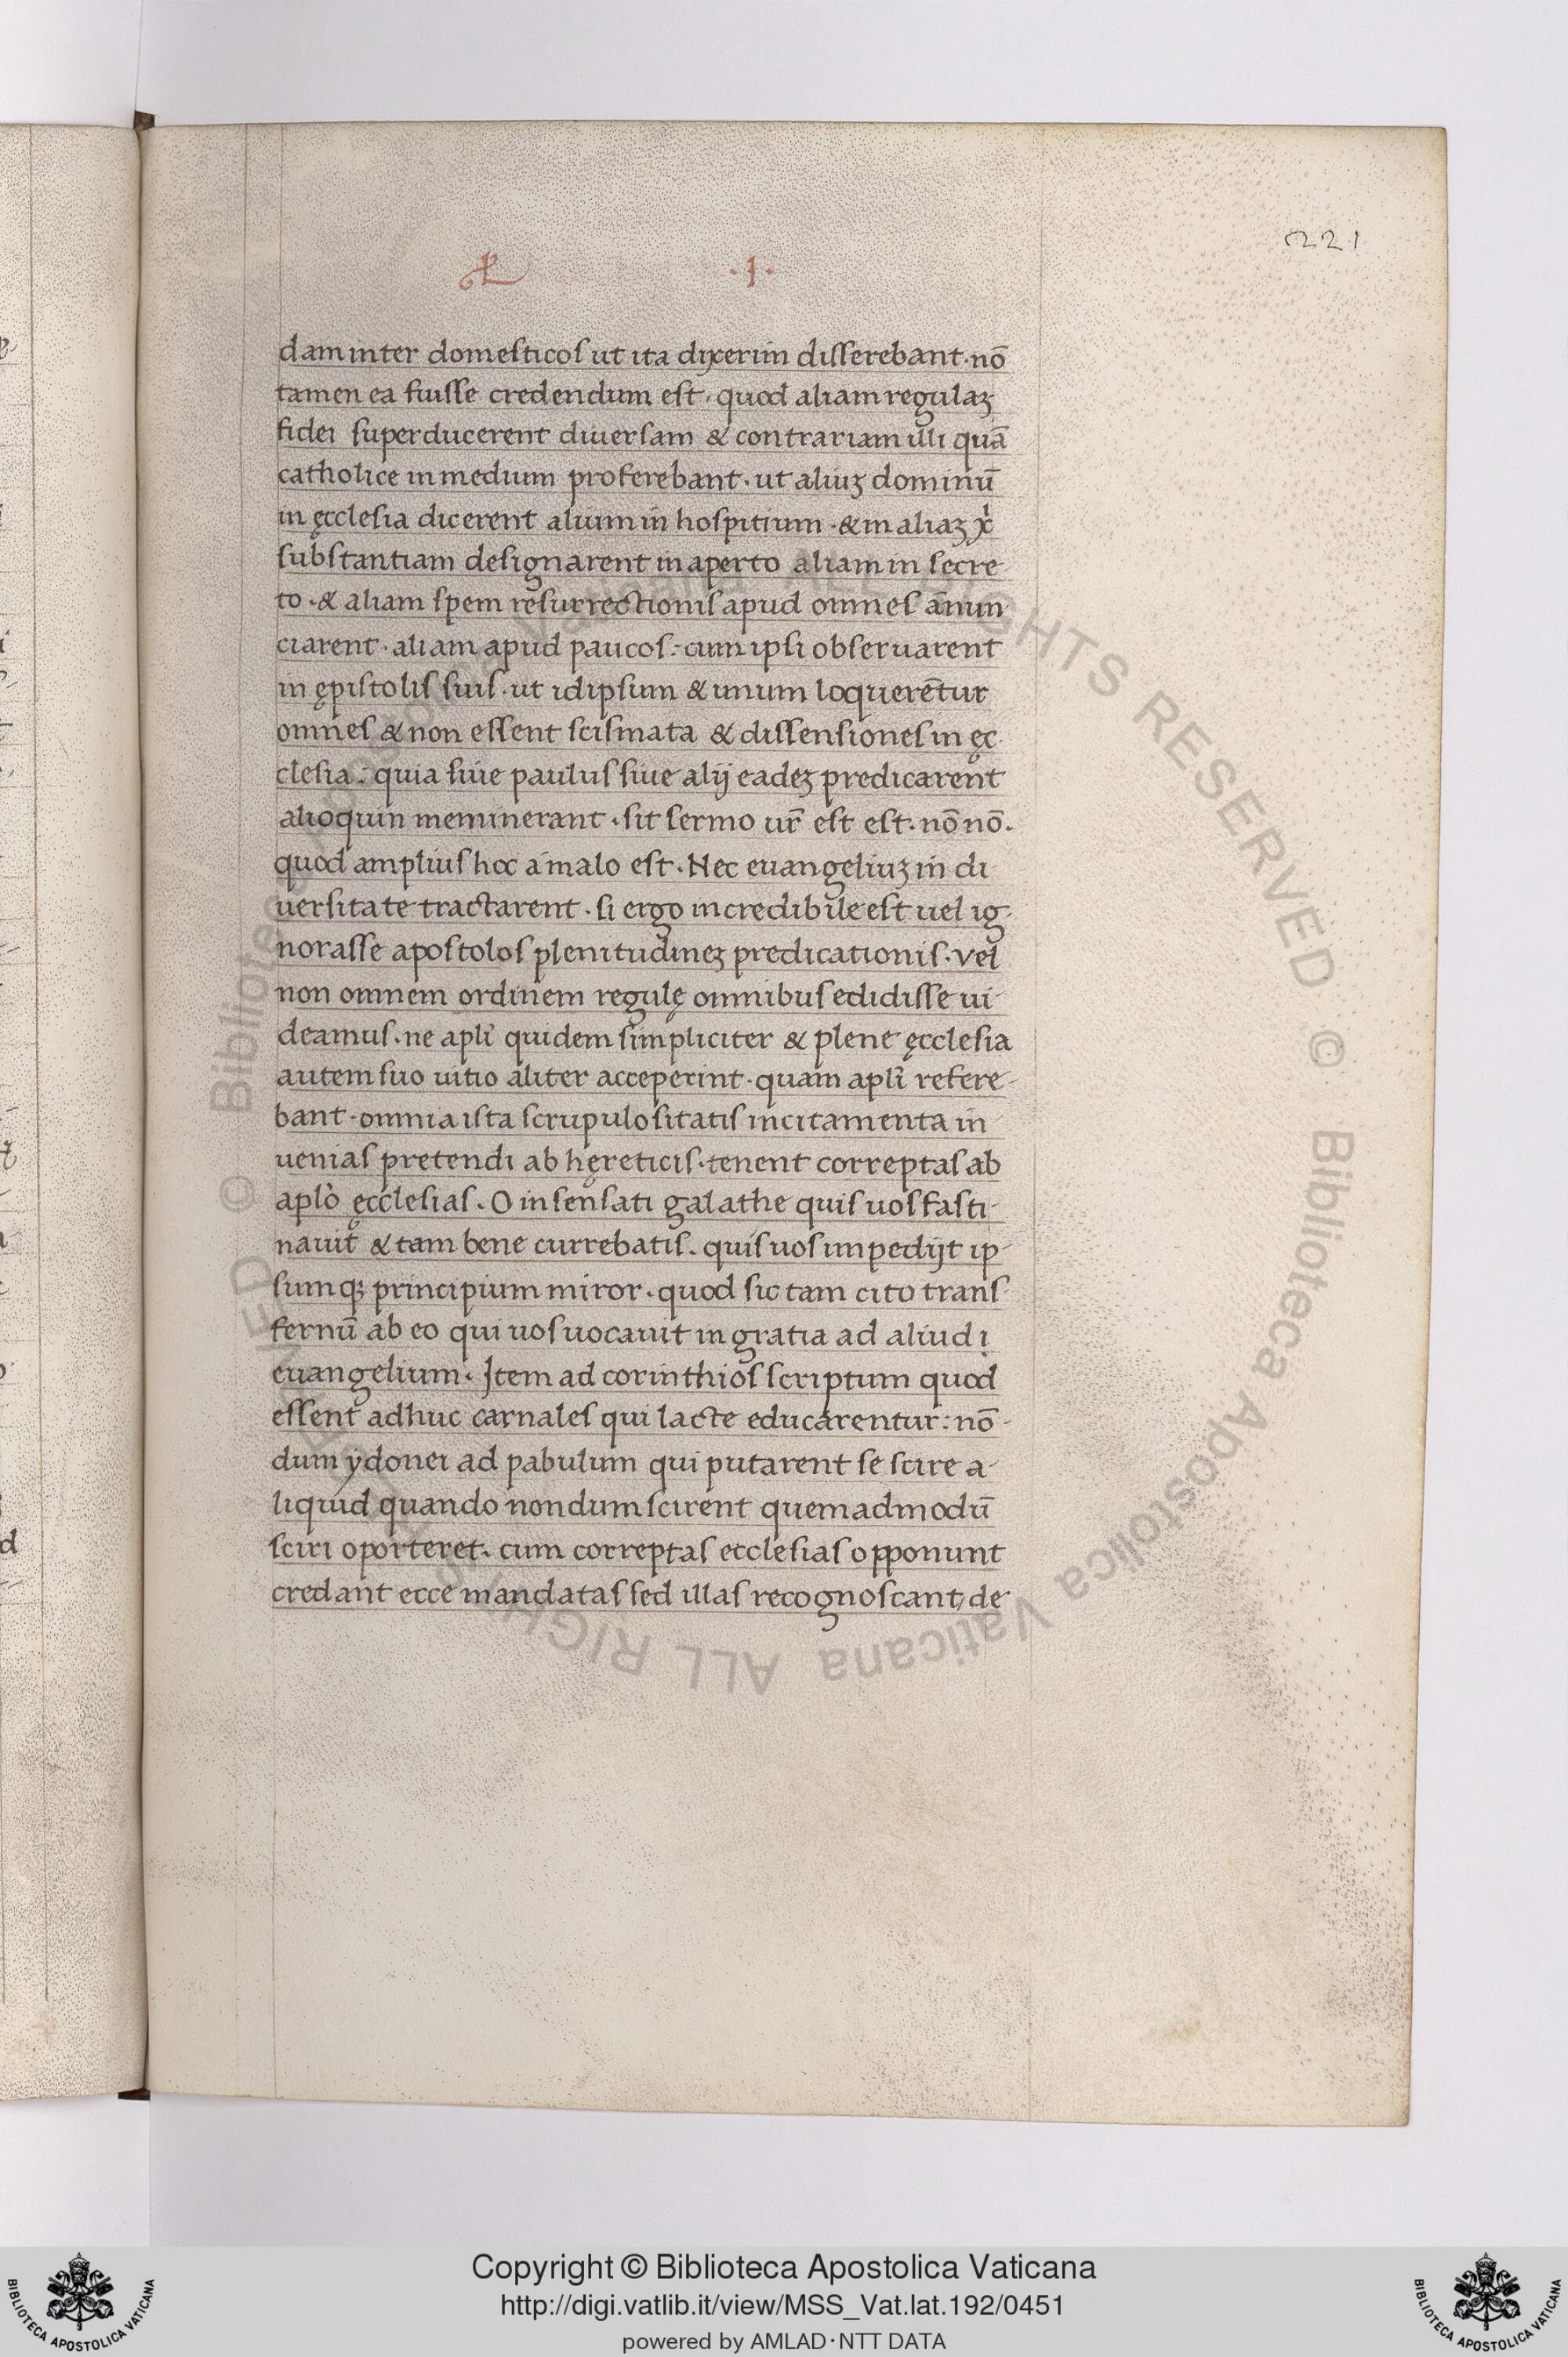 221
·I·
dam inter domesticos ut ita dixerim disserebant·nō
tamen ea fuisse credendum est· quod aliam regulaꝫ
fidei superducerent diuersam & contrariam illi quā
catholice in medium proferebant· ut aliuꝫ dominū
in ęcclesia dicerent alium in hospitium ·& in aliaꝫ xi̇
substantiam designarent in aperto aliam in secre-
to ·& aliam spem resurrectionis apud omnes ānun
ciarent· aliam apud paucos: cum ipsi obseruarent
in ępistolis suis· ut idipsum & unum loquerētur
omnes & non essent scismata & dissensiones in ęc
clesia: quia siue paulus siue alij eadeꝫ predicarent
alioquin meminerant· sit sermo ur̄ est est· nō nō·
quod amplius hoc a malo est· Nec euangeliuꝫ in di
uersitate tractarent· si ergo incredibile est uel ig-
norasse apostolos plenitudineꝫ predicationis· vel
non omnem ordinem regulę omnibus edidisse ui-
deamus· ne apl̄i quidem simpliciter & plene ęcclesia
autem suo uitio aliter acceperint· quam apl̄i refere-
bant· omnia ista scrupulositatis incitamenta in
uenias pretendi ab hęreticis· tenent correptas ab
apl̄o ęcclesias· O insensati galathe quis uos fasti-
nauit & tam bene currebatis· quis uos impedijt ip-
sumqꝫ principium miror· quod sic tam cito trans-
fernū ab eo qui uos uocauit in gratia ad aliud ị
euangelium· Item ad corinthios scriptum quod
essent adhuc carnales qui lacte educarentur: nō-
dum ydonei ad pabulum qui putarent se scire a-
liquid quando nondum scirent quemadmodū
sciri oporteret· cum correptas ecclesias opponunt
credant ecce mandatas sed illas recognoscant/ de-
© Biblioteca Apostolica Vaticana ALL RIGHTS RESERVED
Copyright © Biblioteca Apostolica Vaticana
http://digi.vatlib.it/view/MSS_Vat.lat.192/0451
powered by AMLAD·NTT DATA
BIBLIOTECA APOSTOLICA VATICANA
BIBLIOTECA APOSTOLICA VATICANA